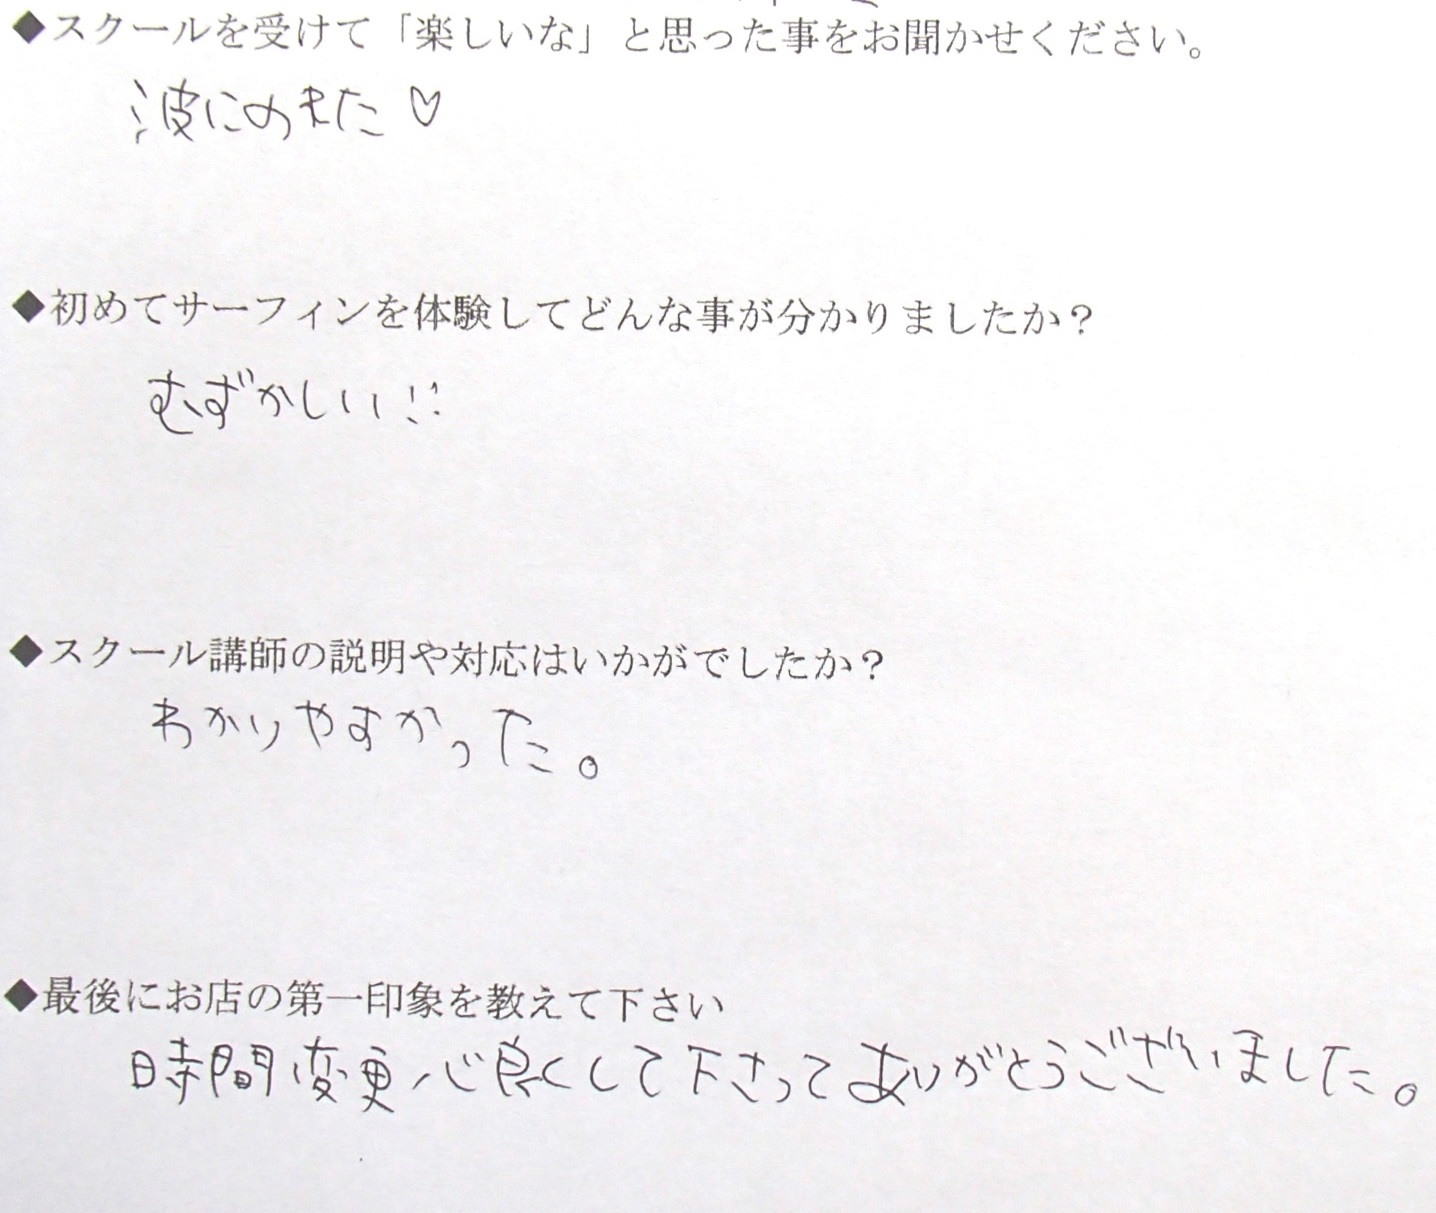 ◆スクールを受けて「楽しいな」と思った事をお聞かせください。
波にのれた♡
◆初めてサーフィンを体験してどんな事が分かりましたか?
むずかしい!!
◆スクール講師の説明や対応はいかがでしたか?
わかりやすかった。
◆最後にお店の第一印象を教えて下さい
時間変更心良くして下さってありがとうございました。